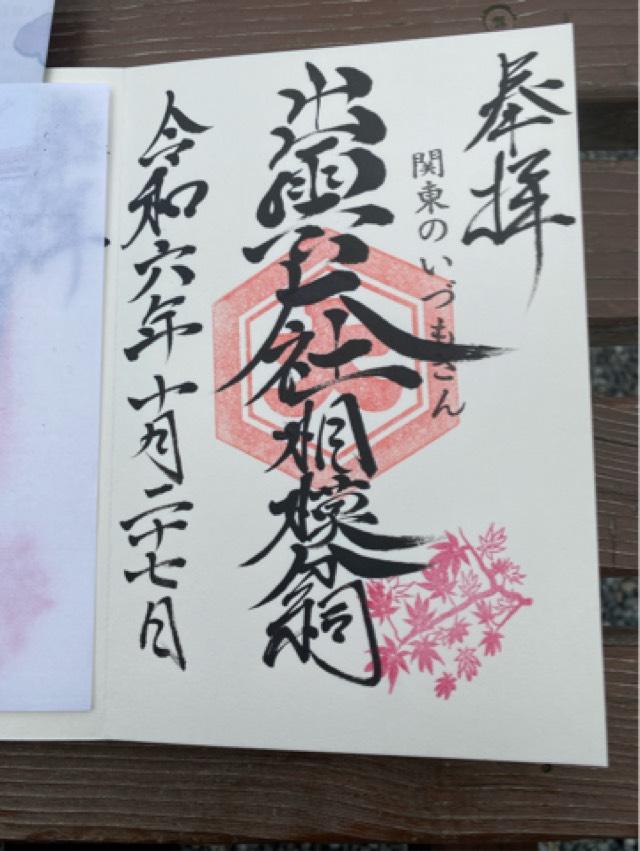 奉拝
関東のいづもさん
出雲大社相模分祠
令和六年十月二十七日